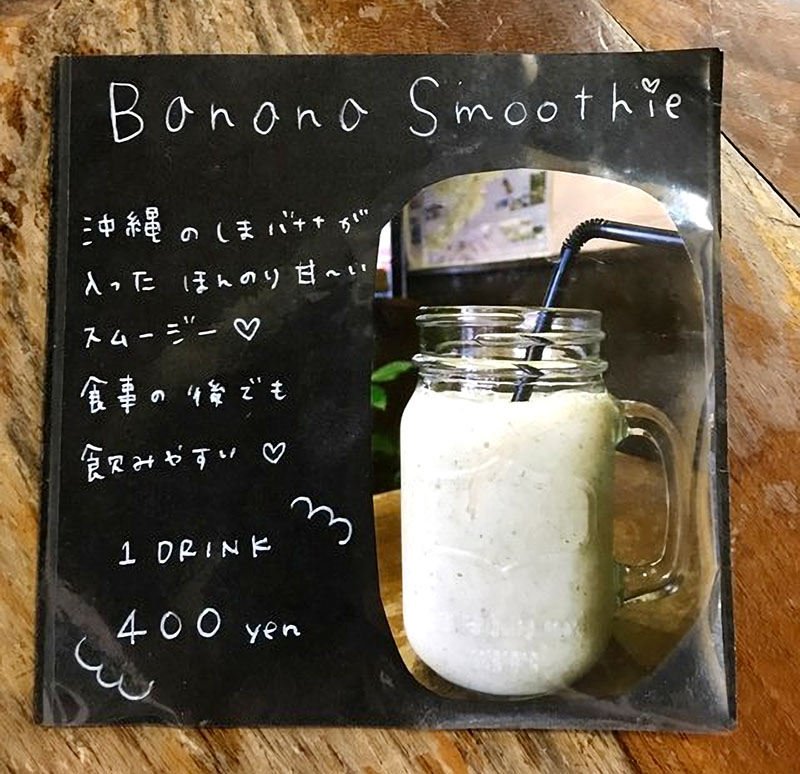 Banana Smoothie
沖縄のしまバナナが
入った ほんのり甘〜い
スムージー♡
食事の後でも
飲みやすい♡
1 DRINK
400 yen